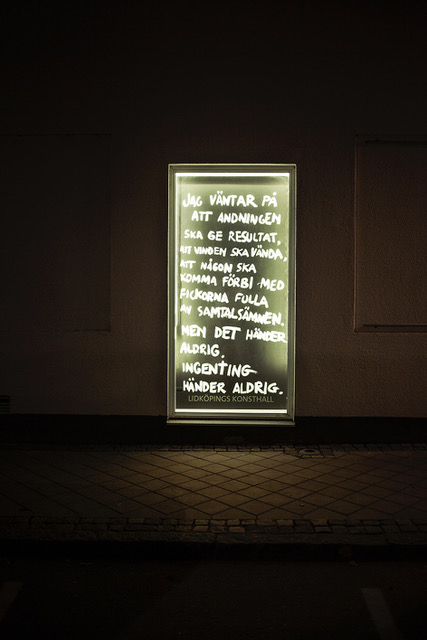 JAG VÄNTAR PÅ
ATT ANDNINGEN
SKA GE RESULTAT,
ATT VINDEN SKA VÄNDA,
ATT NÅGON SKA
KOMMA FÖRBI MED
FICKORNA FULLA
AV SAMTALSÄMNEN.
MEN DET HÄNDER
ALDRIG.
INGENTING
HÄNDER ALDRIG.
LIDKÖPINGS KONSTHALL